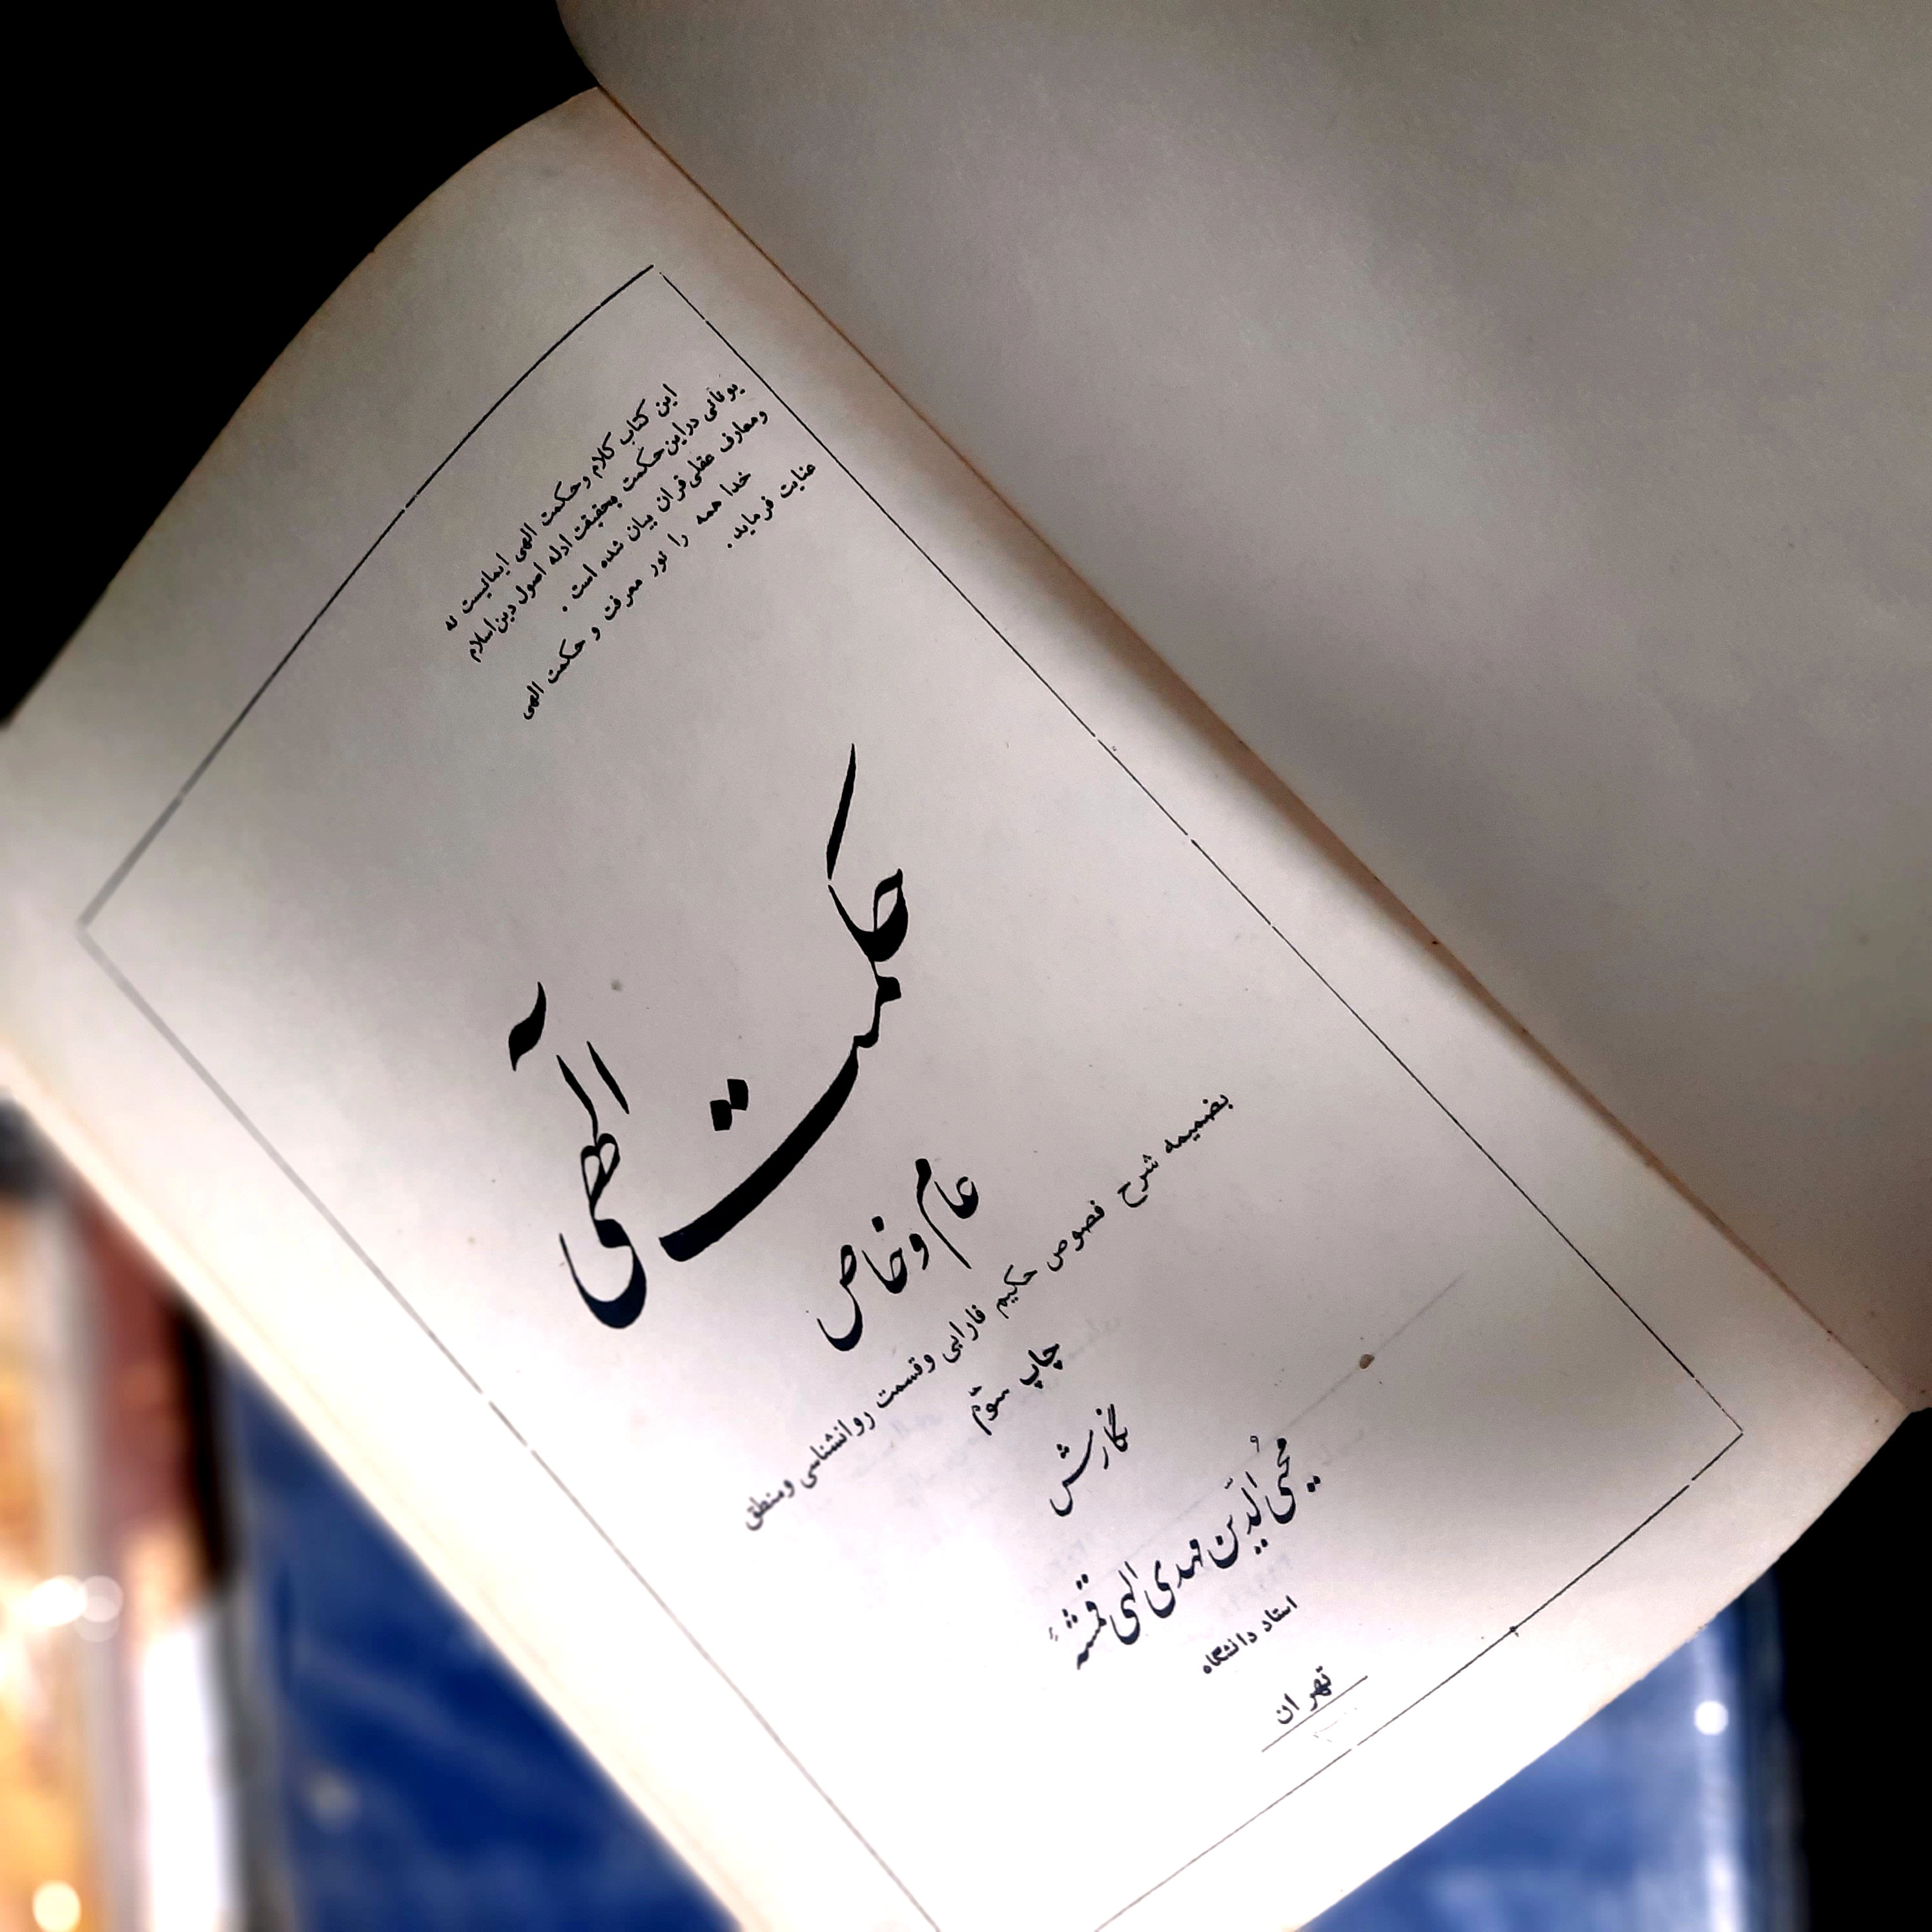 این کتاب کلام وحکمت الهی ایمانیست نه
یونانی دراین حکمت بحقیقت ادله اصول دین اسلام
ومعارف عقلی قرآن بیان شده است .
خدا همه را نور معرفت و حکمت الهی
عنایت فرماید .
حکمت الهی
عام و خاص
بضمیمه شرح فصوص حکیم فارابی وقسمت روانشناسی ومنطق
چاپ سوّم
نگارش
محیی الدّین مهدی الهی قمشهٔ
استاد دانشگاه
تهران